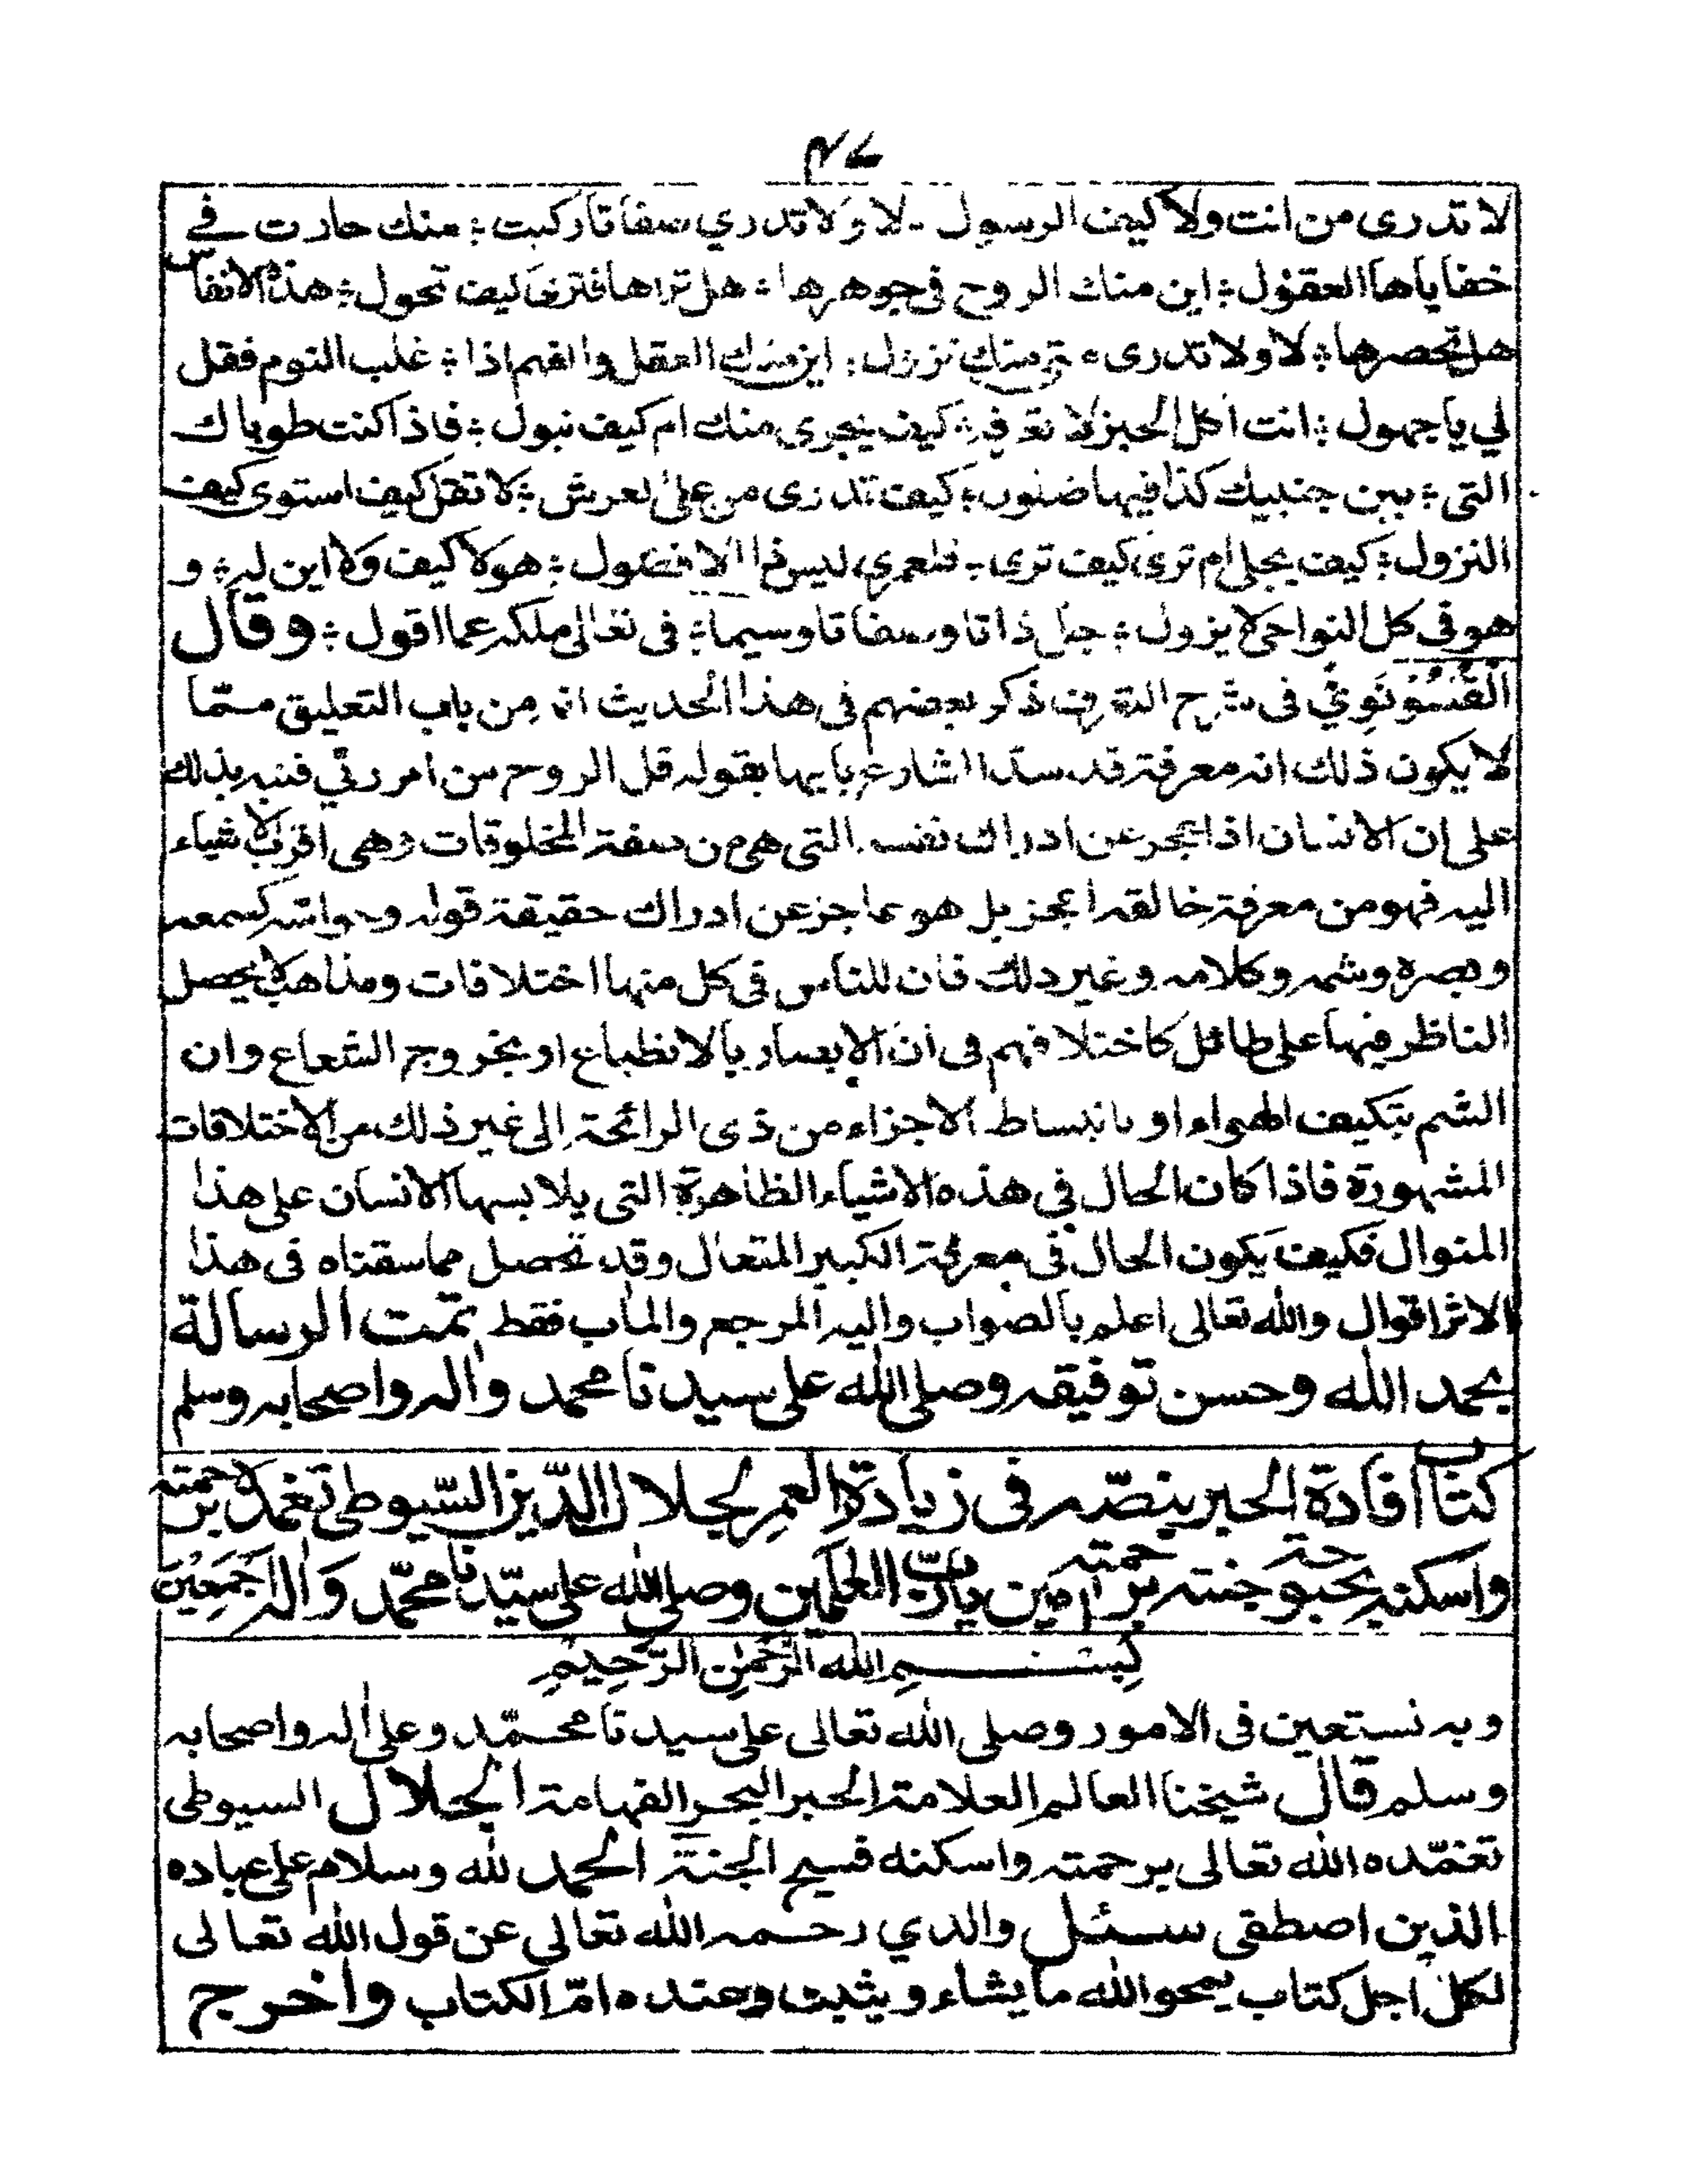 ٤٧
لا تدرى من انت ولا كيف الرسول ۔ لا ولا تدري صفاتا ركبت ؛ منك حارت في
خفاياها العقول ؛ اين منك الروح فى جوهرها ؛ هل تراها فترى كيف تحول ؛ هذه الانفاس
هل تحصرها ؛ لا ولا تدرى متى منك تزول ؛ اين منك العقل والفهم اذا ؛ غلب النوم فقل
لي يا جهول ؛ انت اكل الخبز لا تعرفه ؛ كيف يجرى منك ام كيف تبول ؛ فاذا كنت طوياك
التى ؛ بين جنبيك كذا فيها ضلول ؛ كيف تدرى من على العرش ؛ لا تقل كيف استوى كيف
النزول ؛ كيف يجلى ام ترى كيف ترى ؛ فلعمرى ليس ذا الا فضول ؛ هو لا كيف ولا اين له ؛ و
هو فى كل النواحى لا يزول ؛ جل ذاتا وصفاتا وسيما ؛ فى تعالى ملكه عما اقول ؛ وقال
القونوي فى شرح التعرف ذكر بعضهم فى هذا الحديث انه من باب التعليق مما
لا يكون ذلك انه معرفة قد سد الشارع بابها بقوله قل الروح من امر ربي فنبه بذلك
على ان الانسان اذا عجز عن ادراك نفسه التى هى من صفة المخلوقات وهى اقرب الاشياء
اليه فهو من معرفة خالقه اعجز بل هو عاجز عن ادراك حقيقة قوله وحواسه كسمعه
وبصره وشمه وكلامه وغير ذلك فان للناس فى كل منها اختلافات ومذاهب لا يحصل
الناظر فيها على طائل كاختلافهم فى ان الابصار بالانطباع او بخروج الشعاع وان
الشم بتكيف الهواء او بانبساط الاجزاء من ذى الرائحة الى غير ذلك من الاختلافات
المشهورة فاذا كان الحال فى هذه الاشياء الظاهرة التى يلابسها الانسان على هذا
المنوال فكيف يكون الحال فى معرفة الكبير المتعال وقد تحصل مما سقناه فى هذا
الاثر اقوال والله تعالى اعلم بالصواب واليه المرجع والماب فقط تمت الرسالة
بحمد الله وحسن توفيقه وصلى الله على سيدنا محمد واله واصحابه وسلم
كتاب افادة الخبر بنصّه فى زيادة العمر لجلال الدّين السّيوطى تغمده برحمته
واسكنه بحبوحة جنته برحمته آمين يا ربّ العلمين وصلى الله على سيّدنا محمّد واٰله اجمعين
بسم الله الرحمٰن الرّحيم
وبه نستعين فى الامور وصلى الله تعالى على سيدنا محمّد وعلى اٰله واصحابه
وسلم قال شيخنا العالم العلامة الحبر البحر الفهامة الجلال السيوطى
تغمّده الله تعالى برحمته واسكنه فسيح الجنة الحمد لله وسلام على عباده
الذين اصطفى سئل والدي رحمه الله تعالى عن قول الله تعالى
لكل اجل كتاب يمحو الله ما يشاء ويثبت وعنده امّ الكتاب واخرج